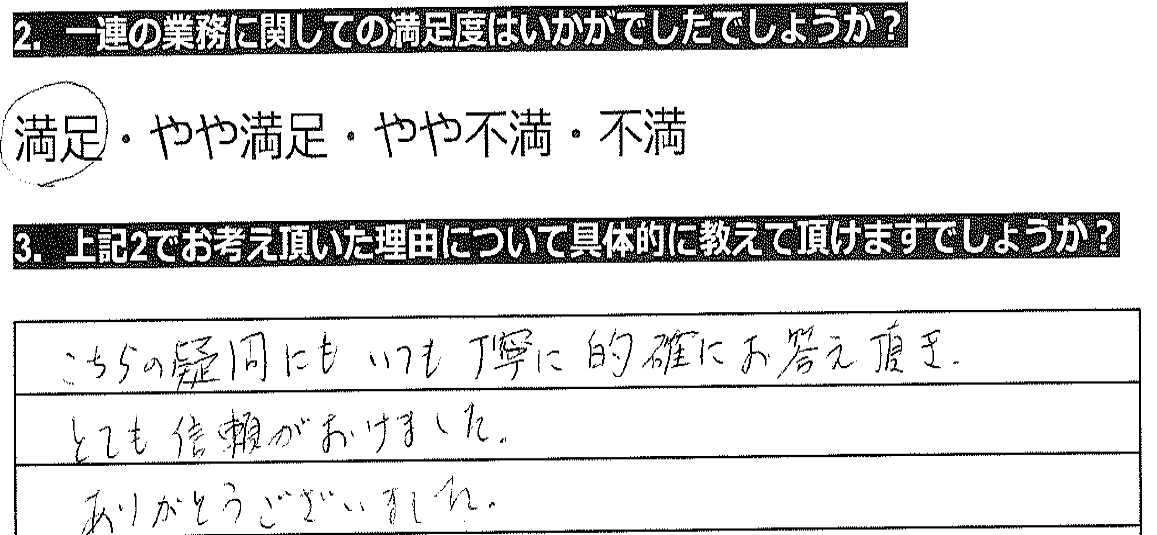 2. 一連の業務に関しての満足度はいかがでしたでしょうか？
満足・やや満足・やや不満・不満
3. 上記2でお考え頂いた理由について具体的に教えて頂けますでしょうか？
こちらの疑問にも いつも 丁寧に 的確にお答え頂き、
とても信頼がおけました。
ありがとうございました。